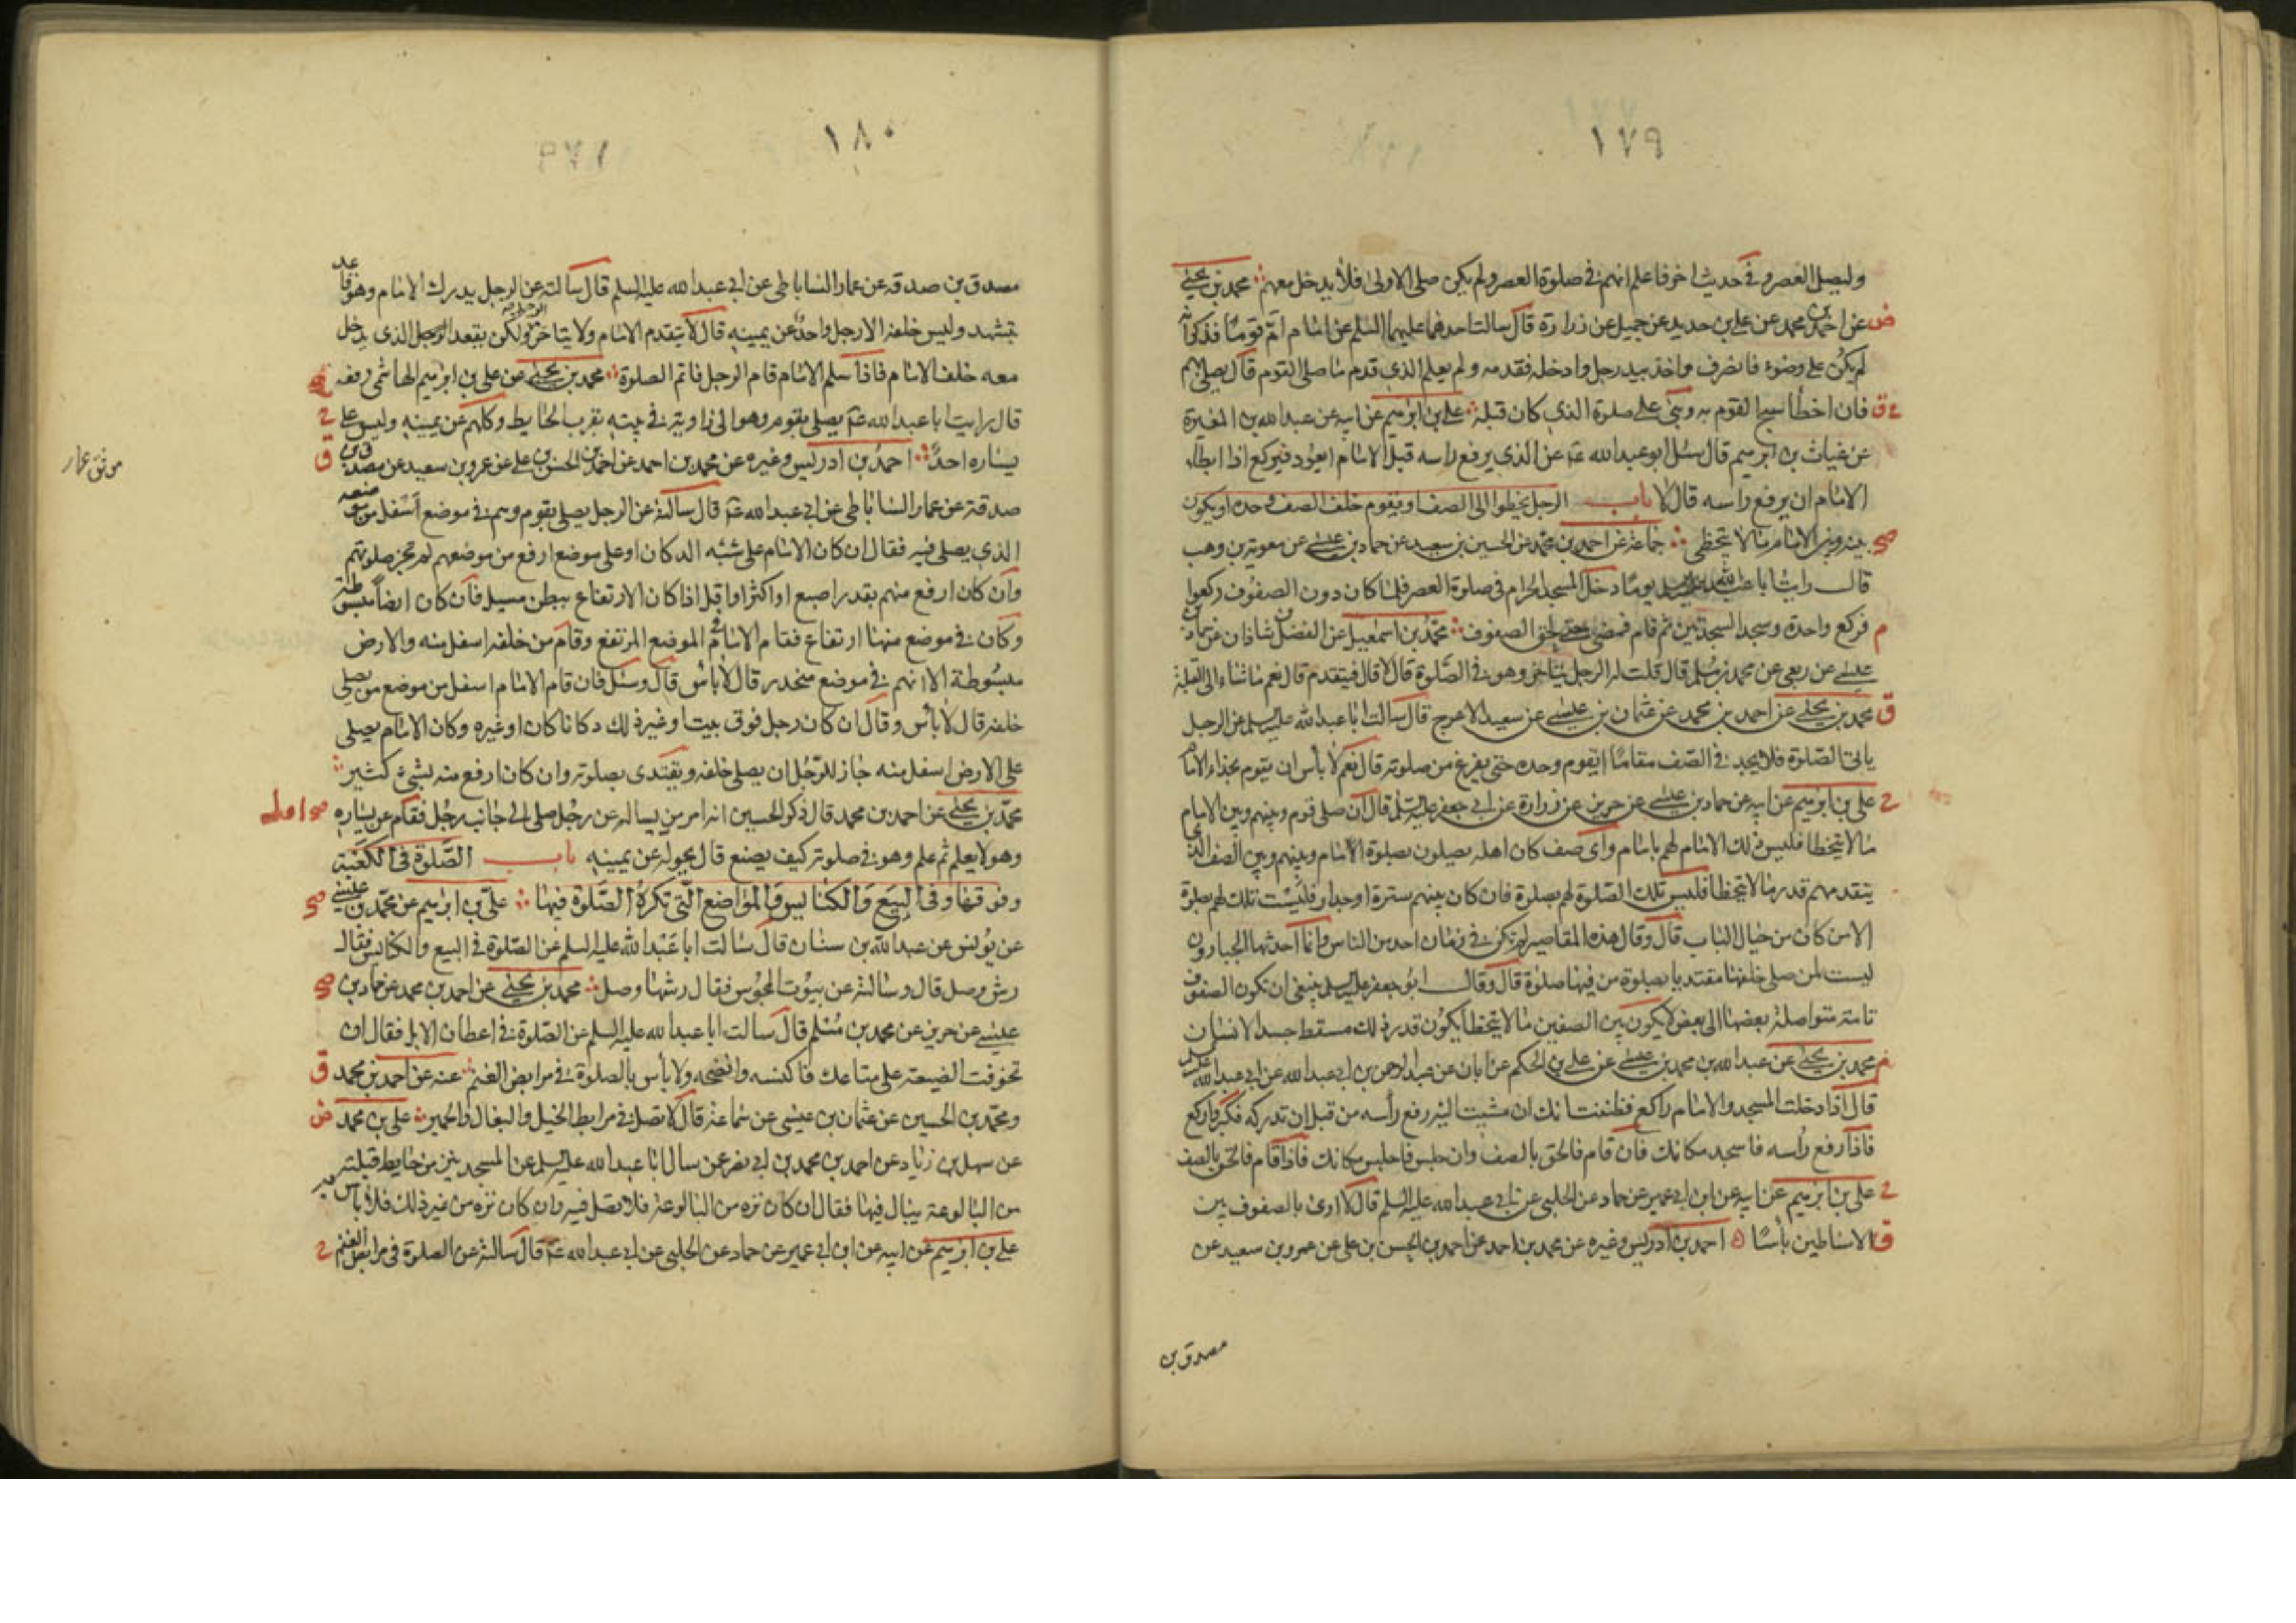 ١٧٩
وليصل العصر وفي حديث اخر فان علم انهم في صلوة العصر ولم يكن صلى الاولى فلا يدخل معهم محمد بن يحيى
ض عن احمد بن محمد عن علي بن حديد عن جميل عن زرارة قال سالت احدهما عليهما السلم عن امام ام قوما فذكر انه
لم يكن على وضوء فانصرف واخذ بيد رجل وادخله فقدمه ولم يعلم الذي قدم ما صلى القوم قال يصلي بهم
فان اخطأ سبح القوم به وبنى على صلوة الذي كان قبله علي بن ابرهيم عن ابيه عن عبد الله بن المغيرة
عن غياث بن ابرهيم قال سئل ابو عبد الله عن الذي يرفع راسه قبل الامام ايعود فيركع اذا ابطاء
الامام ان يرفع راسه قال لا باب الرجل يخطوا الى الصف او يقوم خلف الصف وحده او يكون
صح بينه وبين الامام ما لا يتخطى جماعة عن احمد بن محمد عن الحسين بن سعيد عن حماد بن عيسى عن معوية بن وهب
قال رايت ابا عبد الله يوما دخل المسجد الحرام في صلوة العصر فلما كان دون الصفوف ركعوا
م فركع واحدة وسجد السجدتين ثم قام فمضى حتى لحق الصفوف محمد بن اسمعيل عن الفضل بن شاذان عن حماد بن
عيسى عن ربعي عن محمد بن مسلم قال قلت له الرجل يتاخر وهو في الصلوة قال لا قال فيتقدم قال نعم ما شاء الى القبلة
ق محمد بن يحيى عن احمد بن محمد عن عثمان بن عيسى عن سعيد الاعرج قال سالت ابا عبد الله عليه السلم عن الرجل
ياتي الصلوة فلا يجد في الصف مقاما ايقوم وحده حتى يفرغ من صلوته قال نعم لا بأس ان يقوم بحذاء الامام
ح علي بن ابرهيم عن ابيه عن حماد بن عيسى عن حريز عن زرارة عن ابي جعفر عليه السلم قال ان صلى قوم وبينهم وبين الامام
ما لا يتخطا فليس ذلك الامام لهم بامام واي صف كان اهله يصلون بصلوة الامام وبينهم وبين الصف الذي
يتقدمهم قدر ما لا يتخطا فليس تلك الصلوة لهم بصلوة فان كان بينهم سترة او جدار فليست تلك لهم بصلوة
الا من كان من حيال الباب قال وقال هذه المقاصير لم تكن في زمان احد من الناس وانما احدثها الجبارون
ليست لمن صلى خلفها مقتديا بصلوة من فيها صلوة قال وقال ابو جعفر عليه السلم ينبغي ان تكون الصفوف
تامة متواصلة بعضها الى بعض لا يكون بين الصفين ما لا يتخطا يكون قدر ذلك مسقط جسد الانسان
م محمد بن يحيى عن عبد الله بن محمد بن عيسى عن علي بن الحكم عن ابان عن عبد الرحمن بن ابي عبد الله عن ابي عبد الله
قال اذا دخلت المسجد والامام راكع فظننت انك ان مشيت اليه رفع رأسه من قبل ان تدركه فكبر واركع
فاذا رفع رأسه فاسجد مكانك فان قام فالحق بالصف وان جلس فاجلس مكانك فاذا قام فالحق بالصف
ح علي بن ابرهيم عن ابيه عن ابن ابي عمير عن حماد عن الحلبي عن ابي عبد الله عليه السلم قال لا ارى بالصفوف بين
ق الاساطين بأسا احمد بن ادريس وغيره عن محمد بن احمد عن احمد بن الحسن بن علي عن عمرو بن سعيد عن
مصدق بن
١٨٠
مصدق بن صدقة عن عمار الساباطي عن ابي عبد الله عليه السلم قال سالته عن الرجل يدرك الامام وهو قاعد
يتشهد وليس خلفه الا رجل واحد عن يمينه قال لا يتقدم الامام ولا يتاخر الرجل ولكن يقعد الرجل الذي يدخل
معه خلف الامام فاذا سلم الامام قام الرجل فاتم الصلوة محمد بن يحيى عن علي بن ابرهيم الهاشمي رفعه
قال رايت ابا عبد الله يصلي بقوم وهو الى زاوية في بيته بقرب الحايط وكلهم عن يمينه وليس على
يساره احد احمد بن ادريس وغيره عن محمد بن احمد عن احمد بن الحسن بن علي عن عمرو بن سعيد عن مصدق بن ق
موثق عمار
صدقة عن عمار الساباطي عن ابي عبد الله قال سالته عن الرجل يصلي بقوم وهم في موضع اسفل من موضعه
الذي يصلي فيه فقال ان كان الامام على شبه الدكان او على موضع ارفع من موضعهم لم تجز صلوتهم
وان كان ارفع منهم بقدر اصبع او اكثر او اقل اذا كان الارتفاع ببطن مسيل فان كان ارضا مبسوطة
وكان في موضع منها ارتفاع فقام الامام في الموضع المرتفع وقام من خلفه اسفل منه والارض
مبسوطة الا انهم في موضع منحدر قال لا بأس قال وسئل فان قام الامام اسفل من موضع من يصلي
خلفه قال لا بأس وقال ان كان رجل فوق بيت او غير ذلك دكانا كان او غيره وكان الامام يصلي
على الارض اسفل منه جاز للرجل ان يصلي خلفه ويقتدي بصلوته وان كان ارفع منه بشيء كثير
محمد بن يحيى عن احمد بن محمد قال ذكر الحسين انه امر من يساله عن رجل صلى الى جانب رجل فقام عن يساره
وهو لا يعلم ثم علم وهو في صلوته كيف يصنع قال يحوله عن يمينه باب الصلوة في الكعبة
وفوقها وفي البيع والكنايس والمواضع التي تكره الصلوة فيها علي بن ابرهيم عن محمد بن عيسى صح
عن يونس عن عبد الله بن سنان قال سالت ابا عبد الله عليه السلم عن الصلوة في البيع والكنايس فقال
رش وصل قال وسالته عن بيوت المجوس فقال رشها وصل محمد بن يحيى عن احمد بن محمد عن حماد بن صح
عيسى عن حريز عن محمد بن مسلم قال سالت ابا عبد الله عليه السلم عن الصلوة في اعطان الابل فقال ان
تخوفت الضيعة على متاعك فاكنسه وانضحه ولا بأس بالصلوة في مرابض الغنم عنه عن احمد بن محمد ق
ومحمد بن الحسين عن عثمان بن عيسى عن سماعة قال لا تصل في مرابط الخيل والبغال والحمير علي بن محمد ض
عن سهل بن زياد عن احمد بن محمد بن ابي نصر عمن سال ابا عبد الله عليه السلم عن المسجد ينز من حايط قبلته
من البالوعة يبال فيها فقال ان كان نزه من البالوعة فلا تصل فيه وان كان نزه من غير ذلك فلا بأس به
علي بن ابرهيم عن ابيه عن ابن ابي عمير عن حماد عن الحلبي عن ابي عبد الله قال سالته عن الصلوة في مرابض الغنم ح